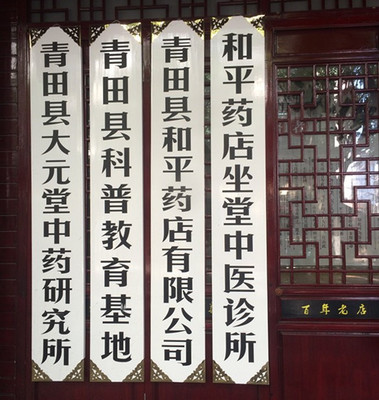 青田县大元堂中药研究所
青田县科普教育基地
青田县和平药店有限公司
和平药店坐堂中医诊所
百年老店